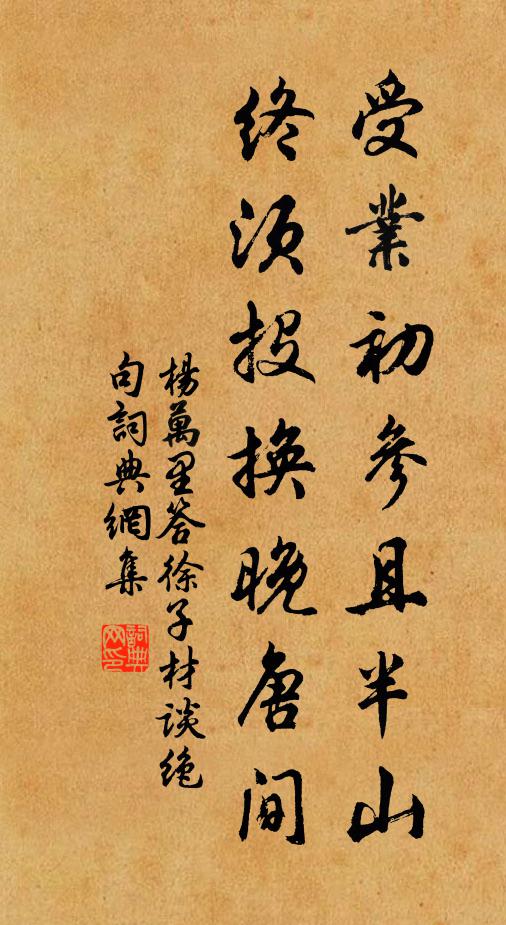 受業初參且半山
終須投換晚唐間
楊萬里答徐子材談絕
句詞典網集
詞典網印